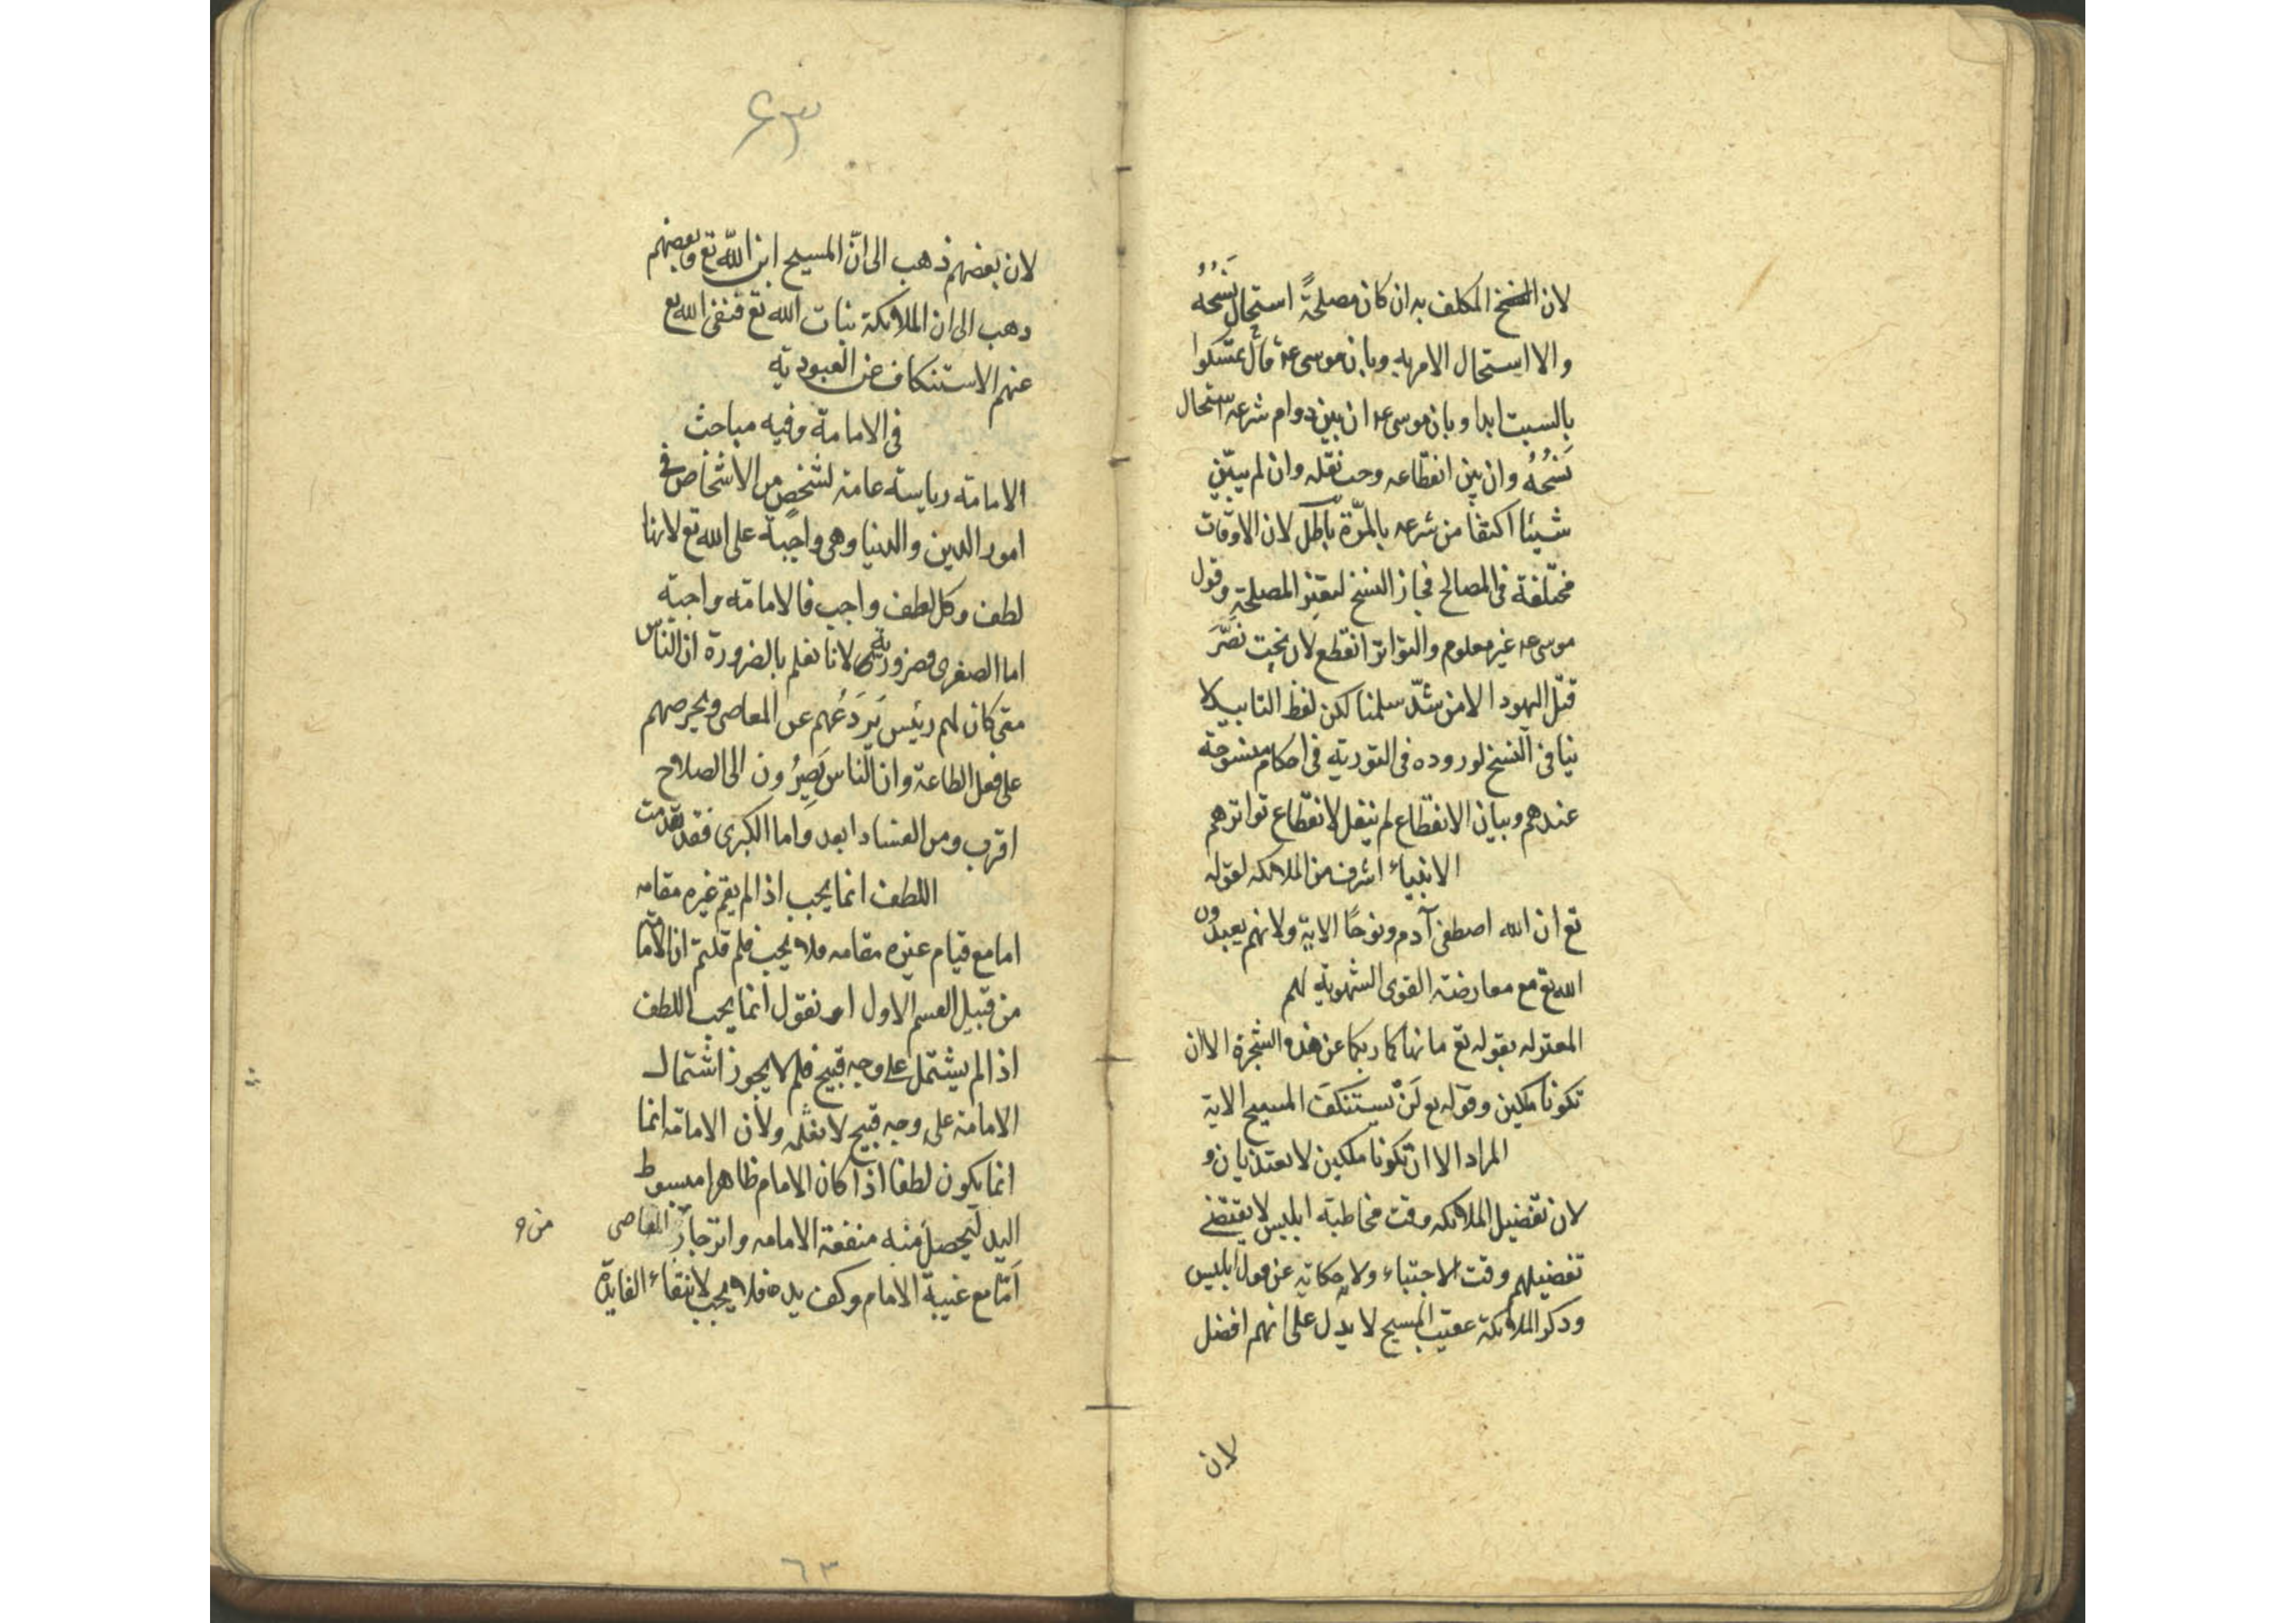 لان النسخ المكلف به ان كان مصلحةً استحال نَسْخُه
والا استحال الامر به وبان موسى عم قال تمسكوا
بالسبت ابدا وبان موسى عم ان بين دوام شرعه استحال
نَسْخُهُ وان بين انقطاعه وجب نقله وان لم يبيّن
شيئا اكتفا من شرعه بالمرّة باطل لان الاوقات
مختلفة فى المصالح فجاز النسخ لتغير المصلحة وقول
موسى عم غير معلوم والتواتر انقطع لان بخت نصَّرَ
قتل اليهود الا من شذّ سلمنا لكن لفظ التابيد لا
ينافى النسخ لوروده فى التورية فى احكام منسوخة
عندهم وبيان الانقطاع لم ينقل لانقطاع تواترهم
الانبياء اشرف من الملائكه لقوله
تع ان الله اصطفى آدم ونوحًا الاية ولانهم يعبدون
الله تع مع معارضة القوى الشهوية لهم
المعتزله بقوله تع ما نهاكما ربكما عن هذه الشجرة الا ان
تكونا ملكين وقوله تع لَنْ يَستَنكَفَ المسيح الاية
المراد الا ان تكونا ملكين لا يعتذيان و
لان تفضيل الملائكه وقت مخاطبة ابليس لا يقتضے
تفضيلهم وقت الاجتباء ولانه حكاية عن قول ابليس
وذكر الملائكة عقيب المسيح لا يدل على انهم افضل
لان
۶۳
لان بعضهم ذهب الى انّ المسيح ابن الله تع وبعضهم
دهب الى ان الملائكة بنات الله تع فنفى الله تع
عنهم الاستنكاف عن العبودية
فى الامامة وفيه مباحث
الامامة رياسة عامة لشخصٍ من الاشخاص فى
امور الدين والدنيا وهى واجبة على الله تع لانها
لطف وكل لطف واجب فالامامة واجبة
اما الصغرى فضرورية لانا نعلم بالضرورة ان الناس
متى كان لهم رئيس يَردَعُهم عن المعاصى ويحرصهم
على فعل الطاعة وان الناس يَصِيرُون الى الصلاح
اقرب ومن الفساد ابعد واما الكبرى فقد تقدمت
اللطف انما يجب اذا لم يقم غيره مقامه
اما مع قيام غيره مقامه فلا يجب فلم قلتم ان الامامة
من قبيل القسم الاول او نقول انما يجب اللطف
اذا لم يشتمل على وجه قبيح فلم لا يجوز اشتمال
الامامة على وجه قبيح لا نعلمه ولأن الامامة انما
انما يكون لطفا اذا كان الامام ظاهرا مبسوط
اليد ليَحصلَ منه منفعة الامامه وانزجار المعاصى
أمّا مع غيبة الامام وكف يده فلا يجب لانتفاء الفايدة
٦٣